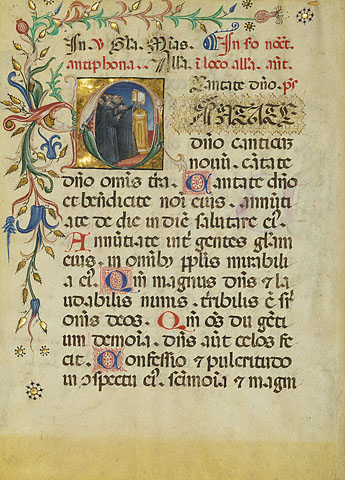 In v gla. Mias. In fo noct.
antiphona. Alla. i loco alla. ant.
Cantate dño. ps
C ANTATE
dño canticuz
nouū. cātate
dño omīs tra. Cantate dño
et bendicite noī eius. annūti
ate de die in diē salutare ei'.
Annūtiate int gentes glam
eius. in omīb; pplis mirabilia
a ei'. Qm magnus dñs ⁊ la
udabilis nimis. tribilis ē sr
omīs deos. Qm oēs dii gēti
um demoīa. dñs aut celos fe
cit. Confessio ⁊ pulcritudo
in ɔspectu ei'. scimoīa ⁊ magn